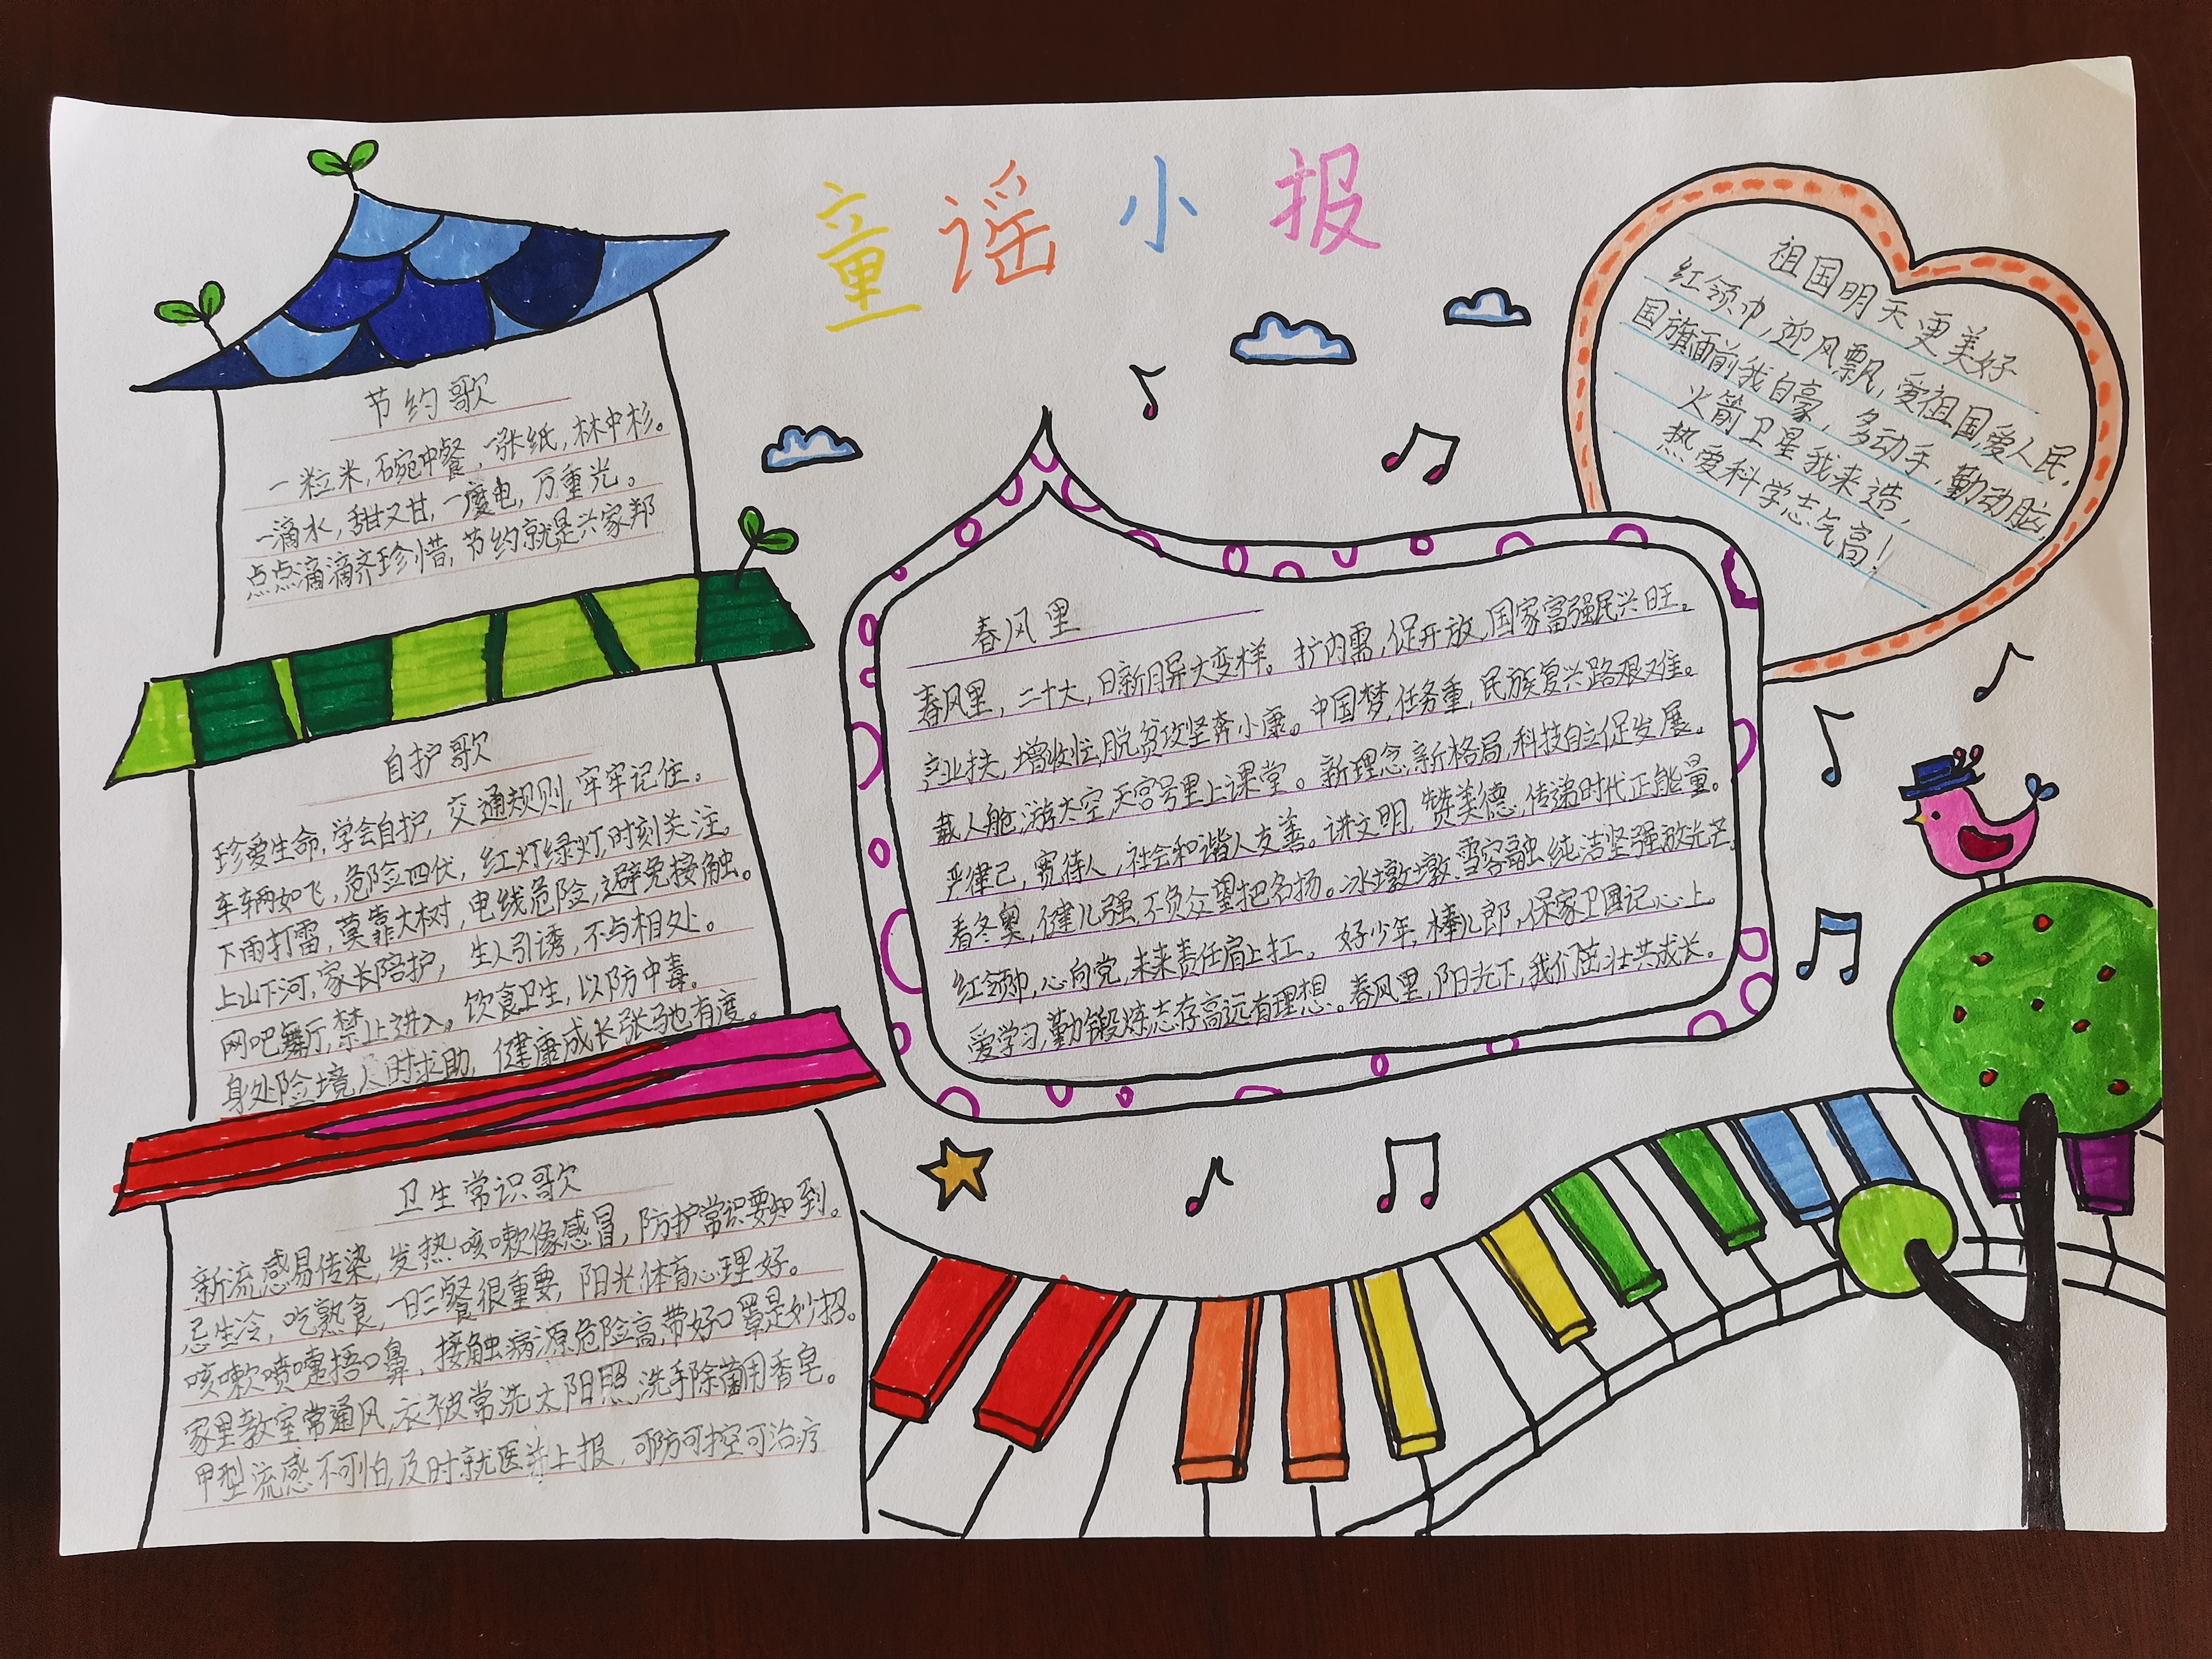 童谣小报
节约歌
一粒米,碗中餐,一张纸,林中杉。
一滴水,甜又甘,一度电,万重光。
点点滴滴齐珍惜,节约就是兴家邦
自护歌
珍爱生命,学会自护,交通规则,牢牢记住。
车辆如飞,危险四伏,红灯绿灯,时刻关注。
下雨打雷,莫靠大树,电线危险,避免接触。
上山下河,家长陪护,生人引诱,不与相处。
网吧舞厅,禁止进入。饮食卫生,以防中毒。
身处险境,及时求助,健康成长张驰有度。
卫生常识歌
新流感易传染,发热咳嗽像感冒,防护常识要知到。
忌生冷,吃熟食,一日三餐很重要,阳光体育心理好。
咳嗽喷嚏捂口鼻,接触病源危险高,带好口罩是妙招。
家里教室常通风,衣被常洗太阳照,洗手除菌用香皂。
甲型流感不可怕,及时就医并上报,可防可控可治疗
春风里
春风里,二十大,日新月异大变样。扩内需,促开放,国家富强民兴旺。
产业扶,增收忙,脱贫攻坚奔小康。中国梦,任务重,民族复兴路艰难。
载人舱,游太空,天宫号里上课堂。新理念,新格局,科技自立促发展。
严律己,宽待人,社会和谐人友善。讲文明,赞美德,传递时代正能量。
看冬奥,健儿强,不负众望把名扬。冰墩墩,雪容融,纯洁坚强放光芒。
红领巾,心向党,未来责任肩上扛。好少年,棒儿郎,保家卫国记心上。
爱学习,勤锻炼,志存高远有理想。春风里,阳光下,我们茁壮共成长。
祖国明天更美好
红领巾,迎风飘,爱祖国,爱人民,
国旗面前我自豪,多动手,勤动脑,
火箭卫星我来造,
热爱科学志气高!